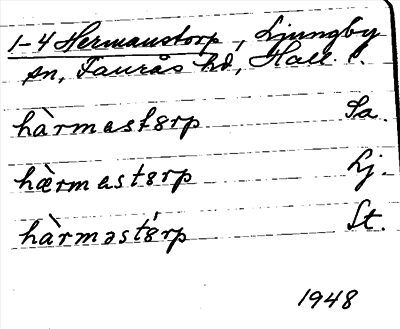 1-4 Hermanstorp, Ljungby
sn, Faurås hd, Hall. l.
hàrmastɵrp Sa.
hæ̀rmastɵrp Lj.
hàrməstɵ́rp St.
1948